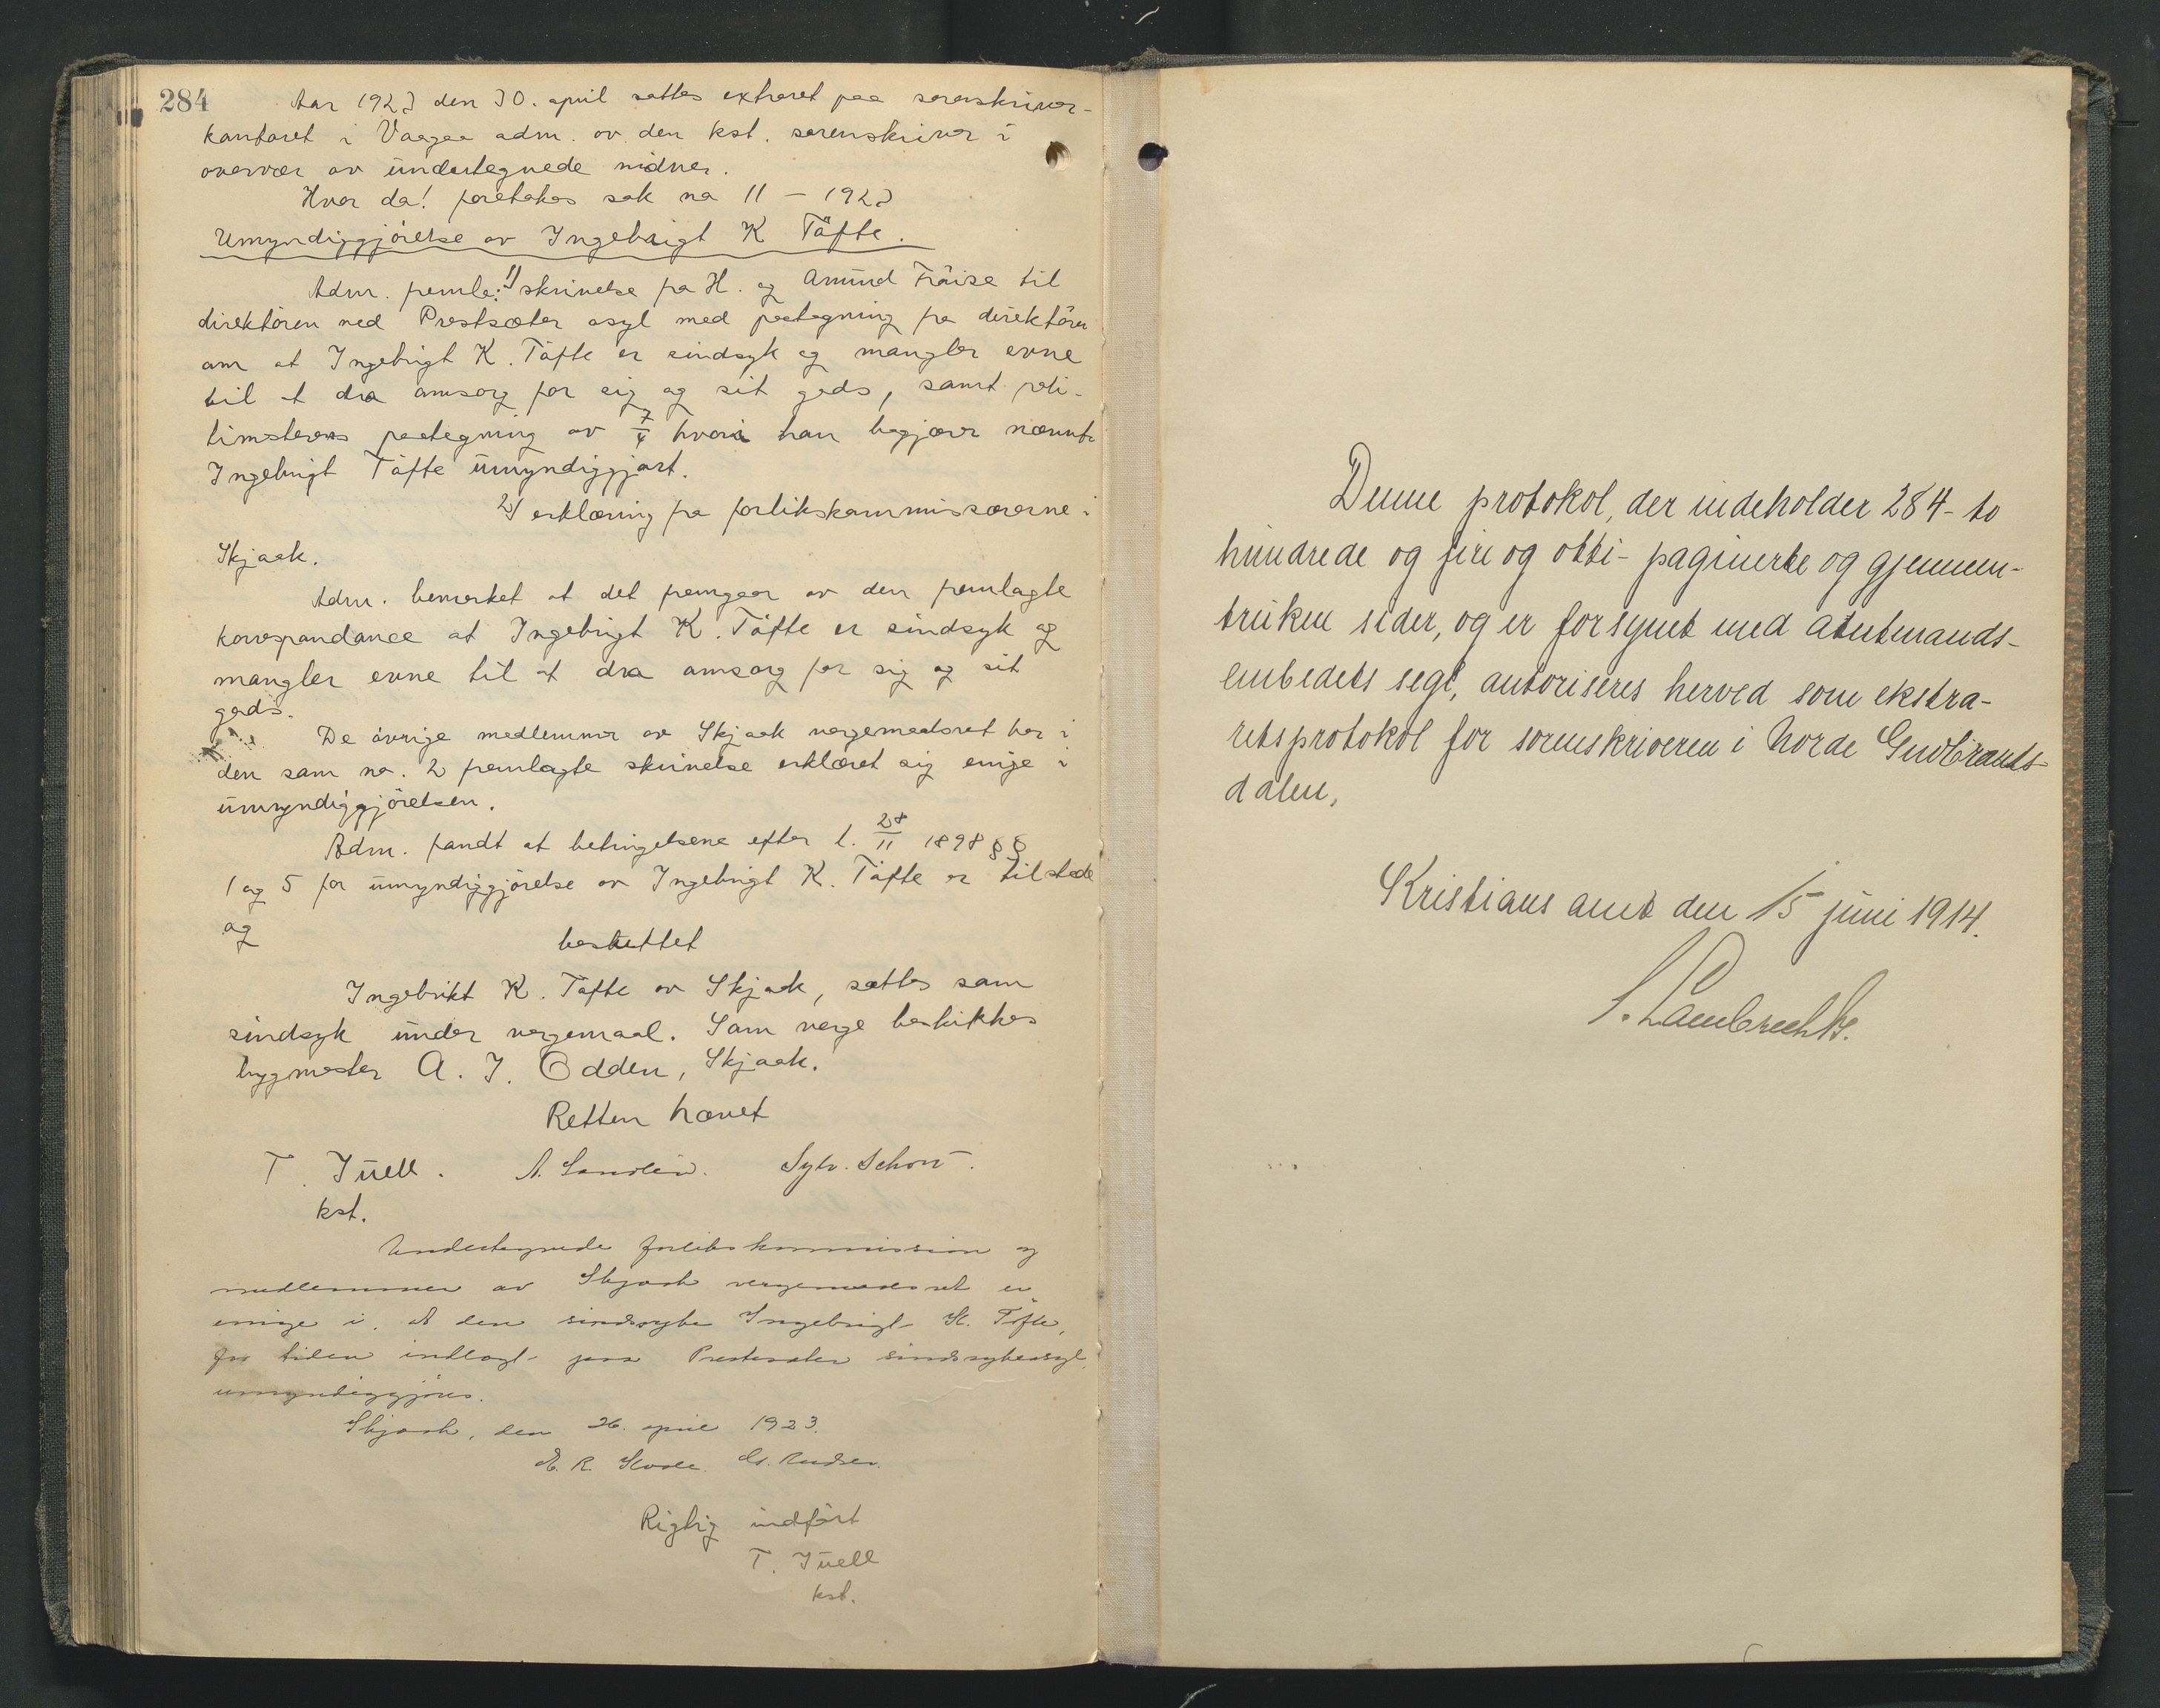 284
Aar 1923 den 30. april sattes extraret paa sorenskriver-
kontoret i Vaagaa adm. av den kst. sorenskriver i
overvær av undertegnede vidner.
Hvor da! foretokes sak no 11 - 1923
Umyndiggjörelse av Ingebrigt K Töfte.
Adm. freml: 1) skrivelse fra H. og Amund til
direktören ved Prestsæter asyl med paategning fra direktören
om at Ingebrigt K. Töfte er sindsyk og mangler evne
til at dra omsorg for sig og sit gods, samt poli-
timesterens paategning av 7/4 hvori han begjærer nævnte
Ingebrigt Töfte umyndiggjort.
2) erklæring fra forlikskommissærerne i
Skjaak.
Adm. bemerket at det fremgaar av den fremlagte
korrespondance at Ingebrigt K. Töfte er sindsyk og
mangler evne til at dra omsorg for sig og sit
gods.
De övrige medlemmer av Skjaak vergemaalsret har i
den som no. 2 fremlagte skrivelse erklæret sig enige i
umyndiggjörelsen.
Adm. fandt at betingelsene efter l. 28/11 1898 §§
1 og 5 for umyndiggjörelse av Ingebrigt K. Töfte er tilstede
og
besluttet
Ingebrikt K. Töfte av Skjaak, sættes som
sindsyk under vergemaal. Som verge beskikkes
bygmester A. J. Odden, Skjaak.
Retten hævet
T. Juell. A. Sandlein. Sylv. Schou
kst.
Undertegnede forlikskommission og
medlemmer av Skjaak vergemaalsret er
enige i. At den sindssyke Ingebrigt K. Töfte,
for tiden indlagt paa Prestesæter sindssykeasyl,
umyndiggjöres.
Skjaak, den 26. april 1923.
E. R.
Rigtig indfört
T. Juell
kst.
Denne protokol, der indeholder 284 - to
hundrede og fire og otti - paginerte og gjennem-
trukne sider, og er forsynet med amtmands-
embedets segl, autoriseres herved som ekstra-
retsprotokol for sorenskriveren i Nordre Gudbrands-
dalen,
Kristians amt den 15 juni 1914.
Lambrechts.